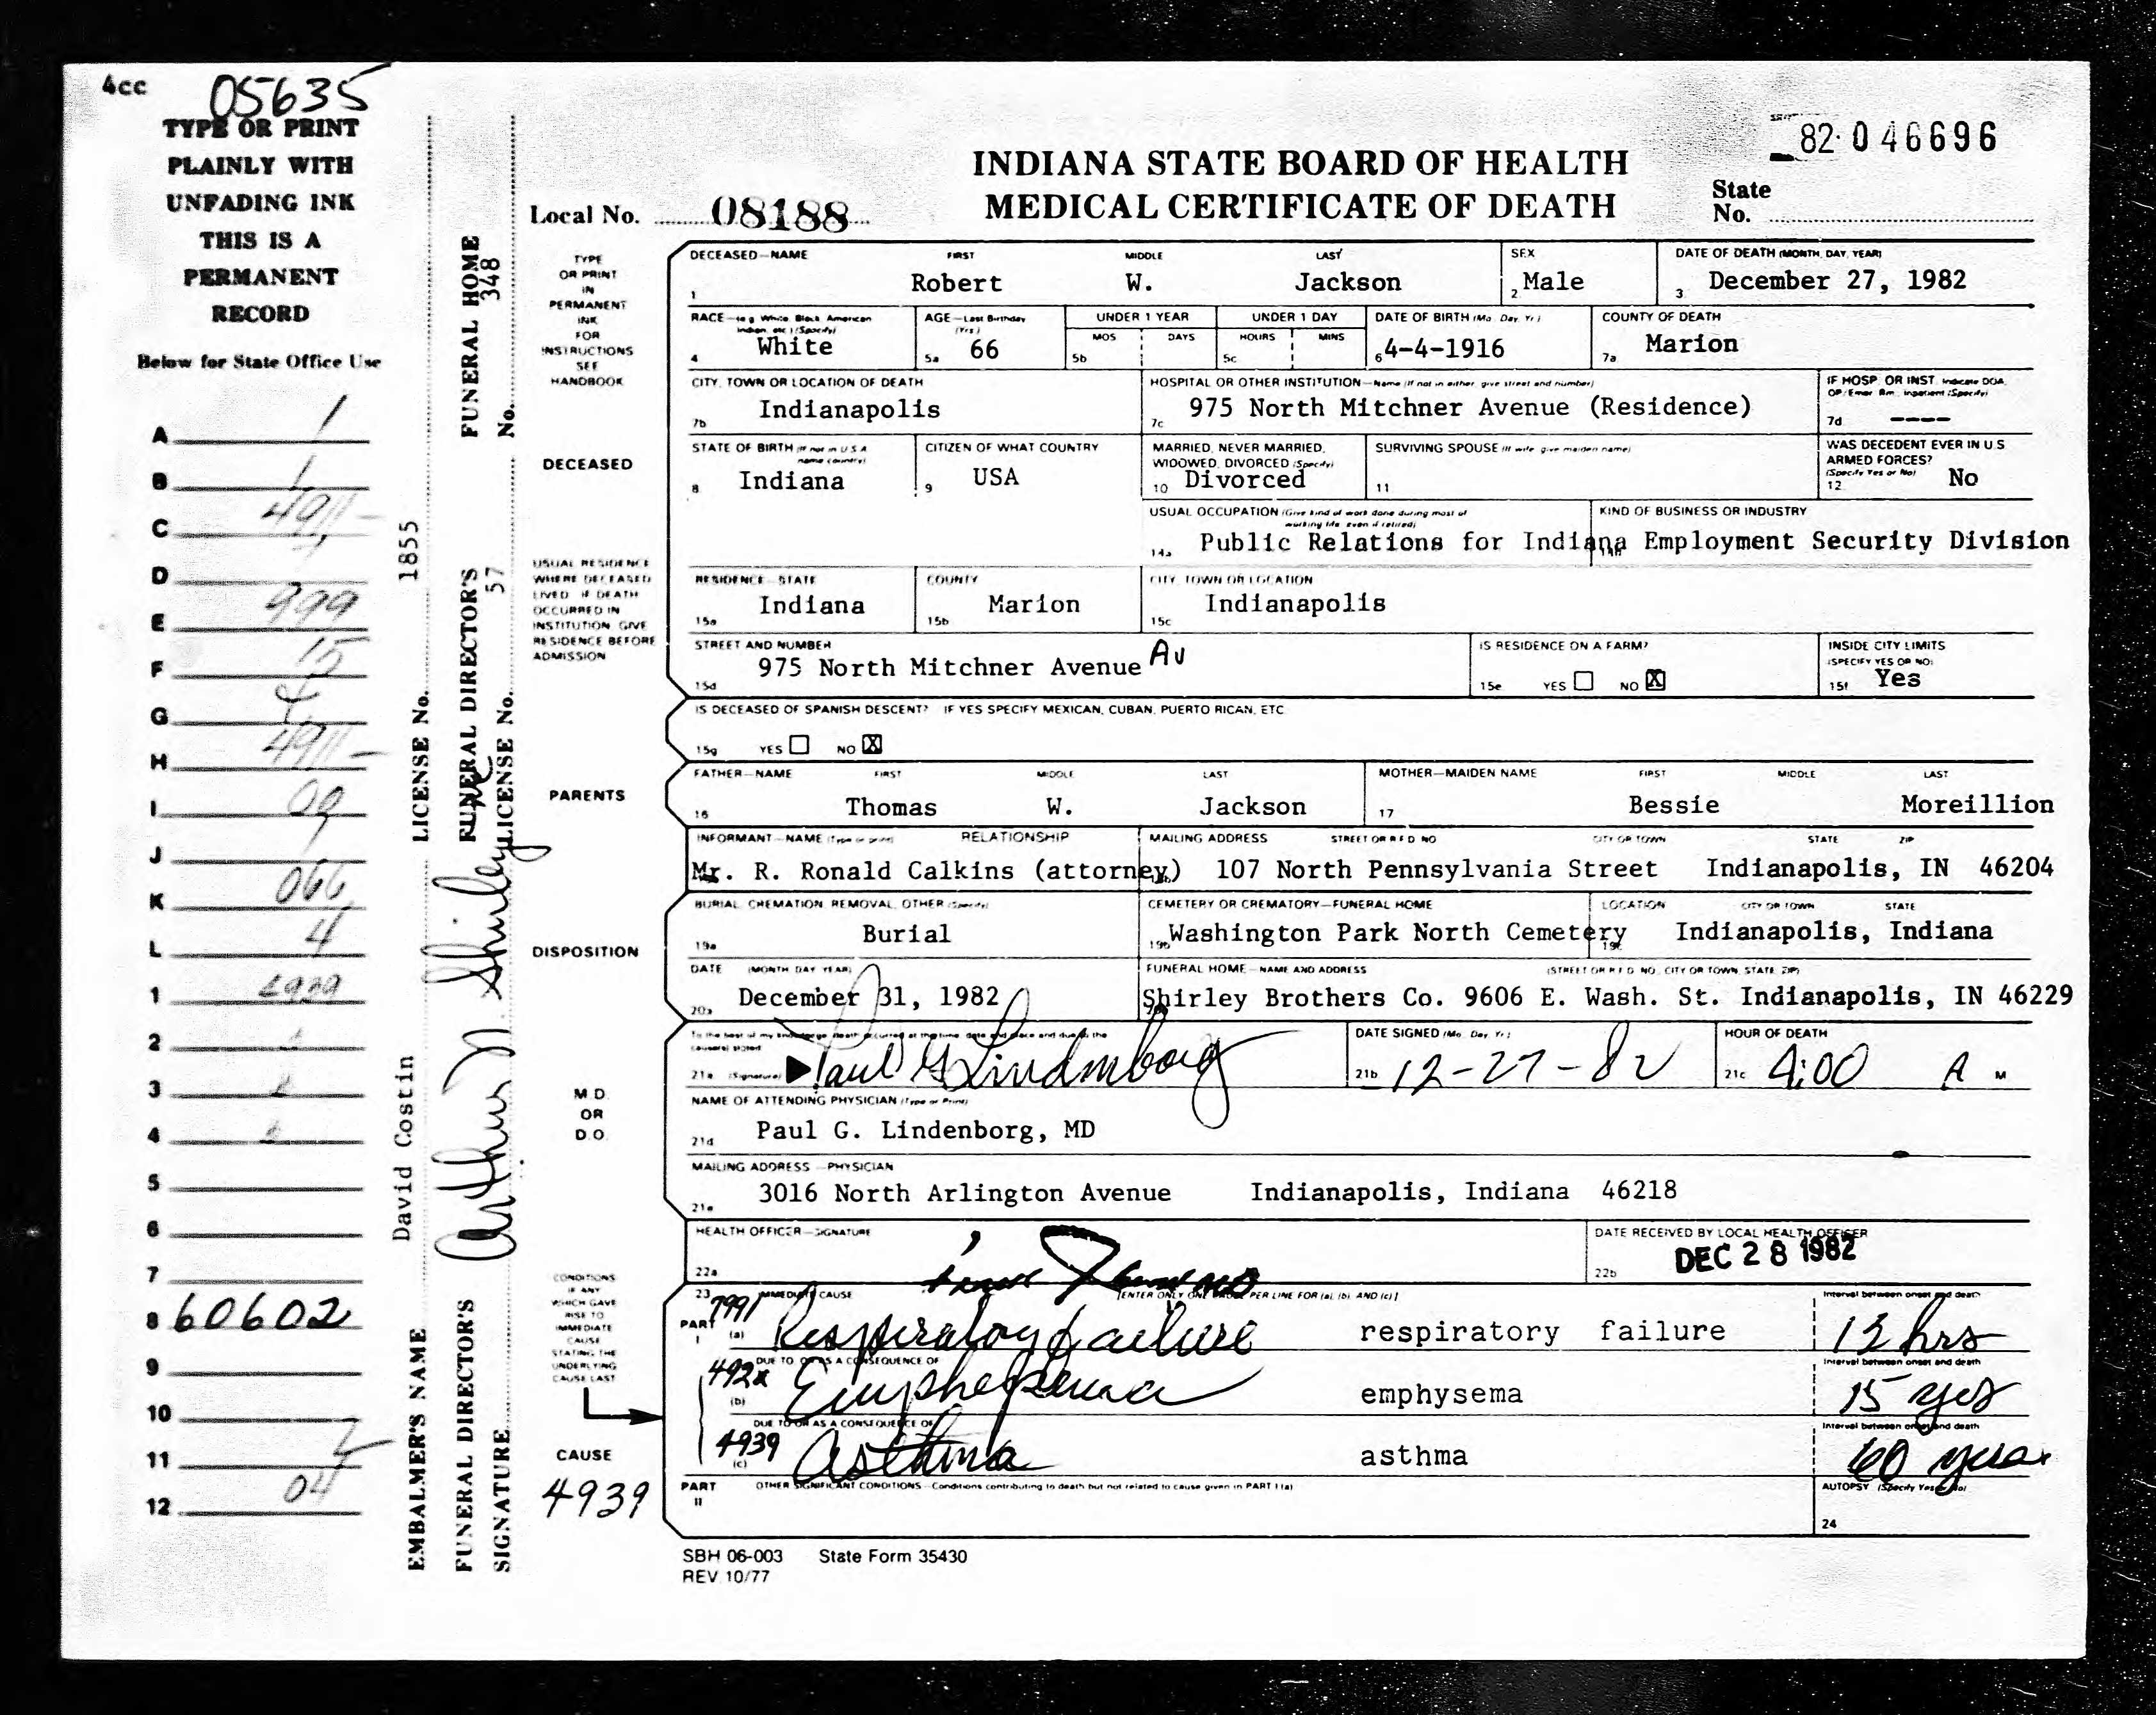 4cc 05635
TYPE OR PRINT
PLAINLY WITH
UNFADING INK
THIS IS A
PERMANENT
RECORD
Below for State Office Use
A 1
B 1
C 4911-
D
E 999
F 15
G
H 4911-
I 09
J
K 066
L 4
1 4939
2
3
4
5
6
7
8 60602
9
10
11
12 04
EMBALMER'S NAME David Costin LICENSE No. 1855
FUNERAL DIRECTOR'S SIGNATURE Arthur N. Shirley FUNERAL DIRECTOR'S LICENSE No. 57
FUNERAL HOME No. 348
82-046696
INDIANA STATE BOARD OF HEALTH
MEDICAL CERTIFICATE OF DEATH
State No.
Local No. 08188
TYPE
OR PRINT
IN
PERMANENT
INK
FOR
INSTRUCTIONS
SEE
HANDBOOK
DECEASED—NAME FIRST MIDDLE LAST SEX DATE OF DEATH (MONTH, DAY, YEAR)
1 Robert W. Jackson 2 Male 3 December 27, 1982
RACE—(e.g. White, Black, American Indian, etc.) (Specify) AGE—Last Birthday (Yrs.) UNDER 1 YEAR UNDER 1 DAY DATE OF BIRTH (Mo. Day. Yr.) COUNTY OF DEATH
MOS DAYS HOURS MINS
4 White 5a 66 5b 5c 6 4-4-1916 7a Marion
CITY, TOWN OR LOCATION OF DEATH HOSPITAL OR OTHER INSTITUTION—Name (If not in either, give street and number) IF HOSP. OR INST. Indicate DOA, OP/Emer. Rm., Inpatient (Specify)
7b Indianapolis 7c 975 North Mitchner Avenue (Residence) 7d ----
DECEASED
STATE OF BIRTH (If not in U.S.A. name country) CITIZEN OF WHAT COUNTRY MARRIED, NEVER MARRIED, WIDOWED, DIVORCED (Specify) SURVIVING SPOUSE (If wife, give maiden name) WAS DECEDENT EVER IN U.S. ARMED FORCES? (Specify Yes or No)
8 Indiana 9 USA 10 Divorced 11 12 No
USUAL OCCUPATION (Give kind of work done during most of working life, even if retired) KIND OF BUSINESS OR INDUSTRY
14a Public Relations for Indiana Employment Security Division
USUAL RESIDENCE
WHERE DECEASED
LIVED IF DEATH
OCCURRED IN
INSTITUTION, GIVE
RESIDENCE BEFORE
ADMISSION
RESIDENCE—STATE COUNTY CITY, TOWN OR LOCATION
15a Indiana 15b Marion 15c Indianapolis
STREET AND NUMBER IS RESIDENCE ON A FARM? INSIDE CITY LIMITS (SPECIFY YES OR NO)
15d 975 North Mitchner Avenue Av 15e YES NO X 15f Yes
IS DECEASED OF SPANISH DESCENT? IF YES SPECIFY MEXICAN, CUBAN, PUERTO RICAN, ETC
15g YES NO X
PARENTS
FATHER—NAME FIRST MIDDLE LAST MOTHER—MAIDEN NAME FIRST MIDDLE LAST
16 Thomas W. Jackson 17 Bessie Moreillion
INFORMANT—NAME (Type or print) RELATIONSHIP MAILING ADDRESS STREET OR R.F.D. NO CITY OR TOWN STATE ZIP
Mr. R. Ronald Calkins (attorney) 107 North Pennsylvania Street Indianapolis, IN 46204
DISPOSITION
BURIAL, CREMATION, REMOVAL, OTHER (Specify) CEMETERY OR CREMATORY—FUNERAL HOME LOCATION CITY OR TOWN STATE
19a Burial 19b Washington Park North Cemetery 19c Indianapolis, Indiana
DATE (MONTH DAY YEAR) FUNERAL HOME—NAME AND ADDRESS (STREET OR R.F.D. NO., CITY OR TOWN, STATE, ZIP)
20a December 31, 1982 Shirley Brothers Co. 9606 E. Wash. St. Indianapolis, IN 46229
M.D.
OR
D.O.
To the best of my knowledge death occurred at the time date and place and due to the cause(s) stated DATE SIGNED (Mo. Day, Yr.) HOUR OF DEATH
21a (Signature) Paul G Lindenborg 21b 12-27-82 21c 4:00 A M
NAME OF ATTENDING PHYSICIAN (Type or Print)
21d Paul G. Lindenborg, MD
MAILING ADDRESS—PHYSICIAN
21e 3016 North Arlington Avenue Indianapolis, Indiana 46218
HEALTH OFFICER—SIGNATURE DATE RECEIVED BY LOCAL HEALTH OFFICER
22a 22b DEC 28 1982
CONDITIONS
IF ANY
WHICH GAVE
RISE TO
IMMEDIATE
CAUSE
STATING THE
UNDERLYING
CAUSE LAST
CAUSE
4939
23 IMMEDIATE CAUSE [ENTER ONLY ONE CAUSE PER LINE FOR (a), (b), AND (c)] Interval between onset and death
PART I 7991 (a) Respiratory failure respiratory failure 12 hrs
DUE TO, OR AS A CONSEQUENCE OF Interval between onset and death
492x (b) Emphysema emphysema 15 yrs
DUE TO, OR AS A CONSEQUENCE OF Interval between onset and death
4939 (c) Asthma asthma 60 years
PART II OTHER SIGNIFICANT CONDITIONS—Conditions contributing to death but not related to cause given in PART I (a) AUTOPSY (Specify Yes or No)
24
SBH 06-003 State Form 35430
REV 10/77